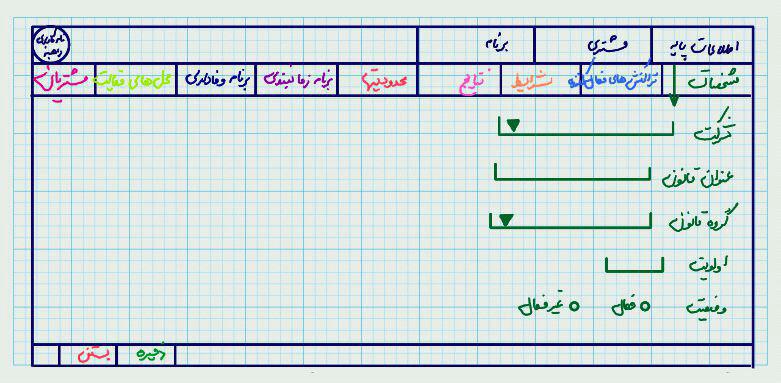 اطلاعات پایه مشتری برنامه نام کاربری
مشخصات تراکنش های فعال کننده شرایط نتایج محدودیتها برنامه زمانبندی برنامه وفاداری محل های فعالیت مشتریان
شرکت
عنوان قانون
گروه قانون
اولویت
وضعیت فعال غیرفعال
ذخیره بستن